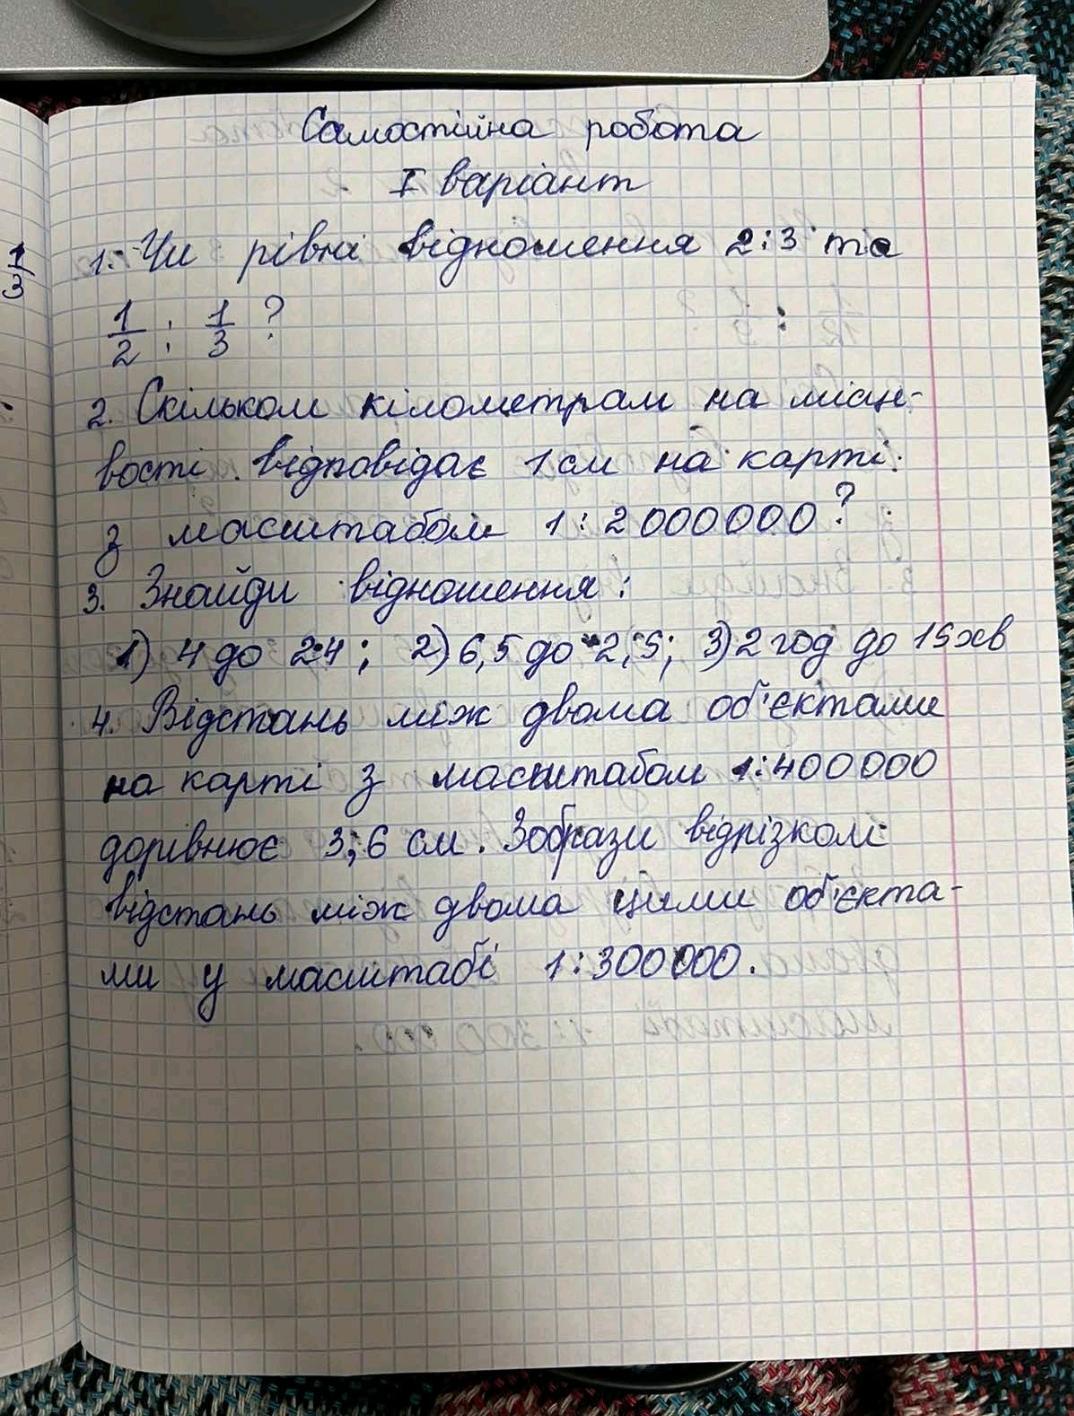 Самостійна робота
I варіант
1. Чи рівні відношення 2:3 та
1/2 : 1/3 ?
2. Скільком кілометрам на місце-
вості відповідає 1 см на карті
з масштабом 1:2000000?
3. Знайди відношення:
1) 4 до 24; 2) 6,5 до 2,5; 3) 2 год до 15 хв
4. Відстань між двома об'єктами
на карті з масштабом 1:400000
дорівнює 3,6 см. Зобрази відрізком
відстань між двома цими об'єкта-
ми у масштабі 1:300000.
1/3